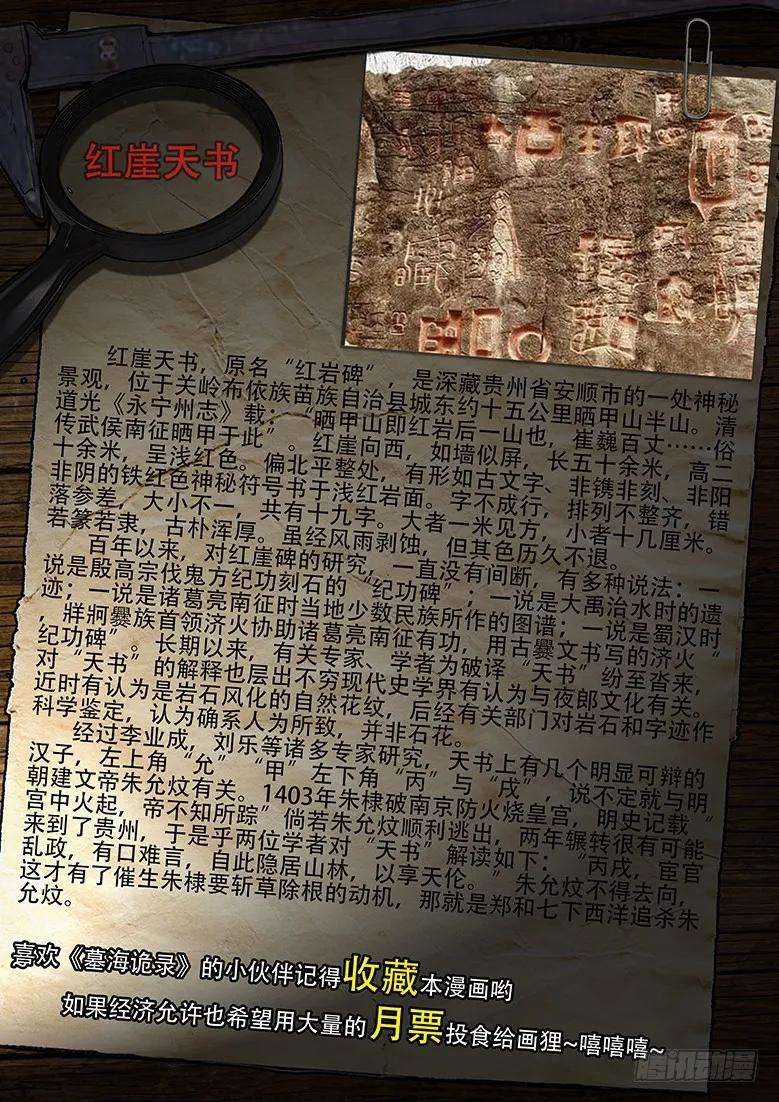 红崖天书
红崖天书，原名“红岩碑”，是深藏贵州省安顺市的一处神秘
景观，位于关岭布依族苗族自治县城东约十五公里晒甲山半山。清
道光《永宁州志》载：“晒甲山即红岩后一山也，崔巍百丈……俗
传武侯南征晒甲于此”。红崖向西，如墙似屏，长五十余米，高二
十余米，呈浅红色。偏北平整处，有形如古文字、非镌非刻、非阳
非阴的铁红色神秘符号书于浅红岩面。字不成行，排列不整齐，错
落参差，大小不一，共有十九字。大者一米见方，小者十几厘米。
若篆若隶，古朴浑厚。虽经风雨剥蚀，但其色历久不退。
百年以来，对红崖碑的研究，一直没有间断，有多种说法：一
说是殷高宗伐鬼方纪功刻石的“纪功碑”；一说是大禹治水时的遗
迹；一说是诸葛亮南征时当地少数民族所作的图谱；一说是蜀汉时
，牂牁爨族首领济火协助诸葛亮南征有功，用古爨文书写的济火“
纪功碑”。长期以来，有关专家、学者为破译“天书”纷至沓来，
对“天书”的解释也层出不穷现代史学界有认为与夜郎文化有关。
近时有认为是岩石风化的自然花纹，后经有关部门对岩石和字迹作
科学鉴定，认为确系人为所致，并非石花。
经过李业成，刘乐等诸多专家研究，天书上有几个明显可辩的
汉子，左上角“允”“甲”左下角“丙”与“戌”，说不定就与明
朝建文帝朱允炆有关。1403年朱棣破南京防火烧皇宫，明史记载“
宫中火起，帝不知所踪”倘若朱允炆顺利逃出，两年辗转很有可能
来到了贵州，于是乎两位学者对“天书”解读如下：“丙戌，宦官
乱政，有口难言，自此隐居山林，以享天伦。”朱允炆不得去向，
这才有了催生朱棣要斩草除根的动机，那就是郑和七下西洋追杀朱
允炆。
喜欢《墓海诡录》的小伙伴记得收藏本漫画哟
如果经济允许也希望用大量的月票投食给画狸~嘻嘻嘻~
腾讯动漫